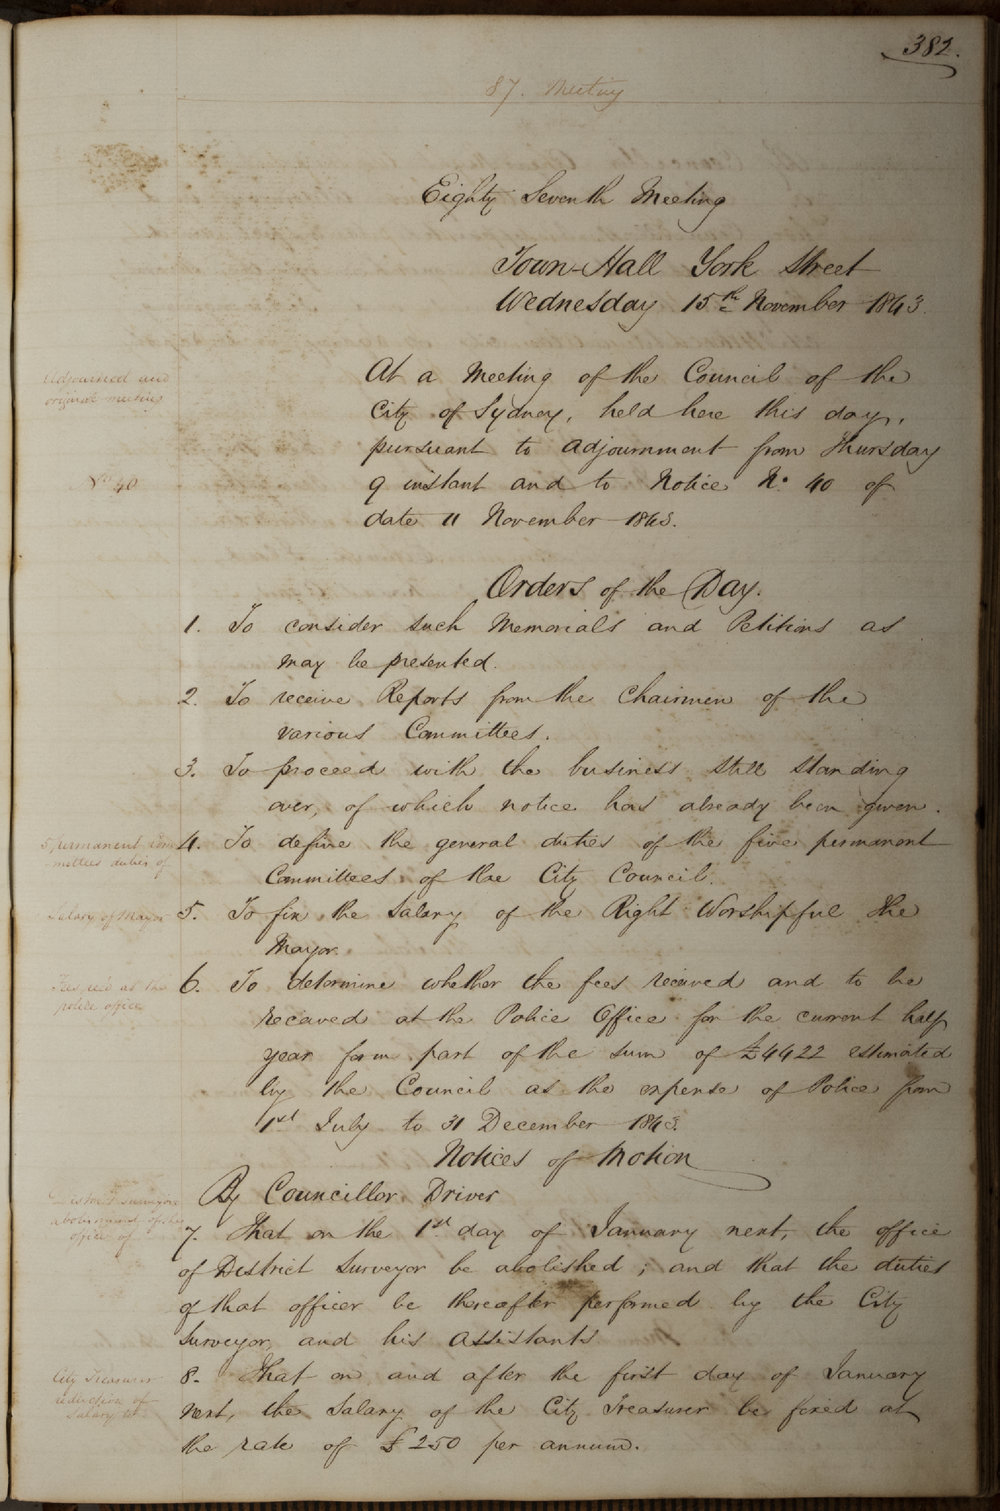 382.
87. Meeting
Eighty Seventh Meeting
Town-Hall York Street
Wednesday 15th November 1843.
Adjourned and
original meeting
At a Meeting of the Council of the
City of Sydney, held here this day,
pursuant to adjournment from Thursday
No 40
9 instant and to Notice No. 40 of
date 11 November 1843.
Orders of the Day.
1. To consider such Memorials and Petitions as
may be presented.
2. To receive Reports from the Chairmen of the
various Committees.
3. To proceed with the business still standing
over, of which notice has already been given.
5, permanent Com
mittees duties of
4. To define the general duties of the five permanent
Committees of the City Council.
Salary of Mayor
5. To fix the Salary of the Right Worshipful the
Mayor.
Fees recd at the
police office
6. To determine whether the fees received and to be
received at the Police Office for the current half
year form part of the sum of £4422 estimated
by the Council as the expense of Police from
1st July to 31 December 1843.
Notices of Motion
By Councillor Driver
District surveyor
abolishment of the
office of
7. That on the 1st day of January next, the office
of District Surveyor be abolished; and that the duties
of that officer be thereafter performed by the City
Surveyor, and his assistants
City Treasurer
reduction of
salary to
8. That on and after the first day of January
next, the Salary of the City Treasurer be fixed at
the rate of £250 per annum.